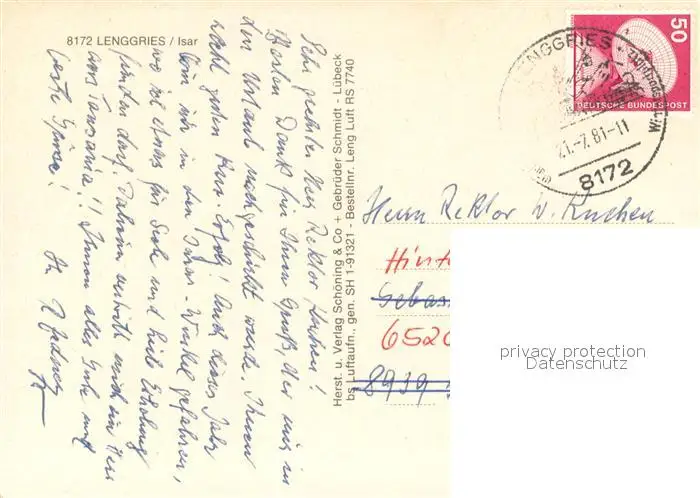 8172 LENGGRIES / Isar
Sehr geehrter Herr Rektor Kuchen!
Besten Dank für Ihren Gruß, der mir in
den Urlaub nachgeschickt wurde. Ihnen
recht guten Kur-Erfolg! Auch dieses Jahr
bin ich in den Isar-Winkel gefahren,
wo ich etwas für Seele und Leib Erholung
finden darf. Daheim vertritt mich ein Herr
aus Tansania!! Ihnen alles Gute und
beste Grüsse! Ihr
Herst. u. Verlag Schöning & Co + Gebrüder Schmidt - Lübeck
bs Luftaufn., gen. SH 1-91321 - Bestellnr. Leng Luft RS 7740
50
DEUTSCHE BUNDESPOST
LENGGRIES
21.-7.81-11
8172
Herrn Rektor W. Kuchen
Hint
Sebas
6520
8939
privacy protection
Datenschutz